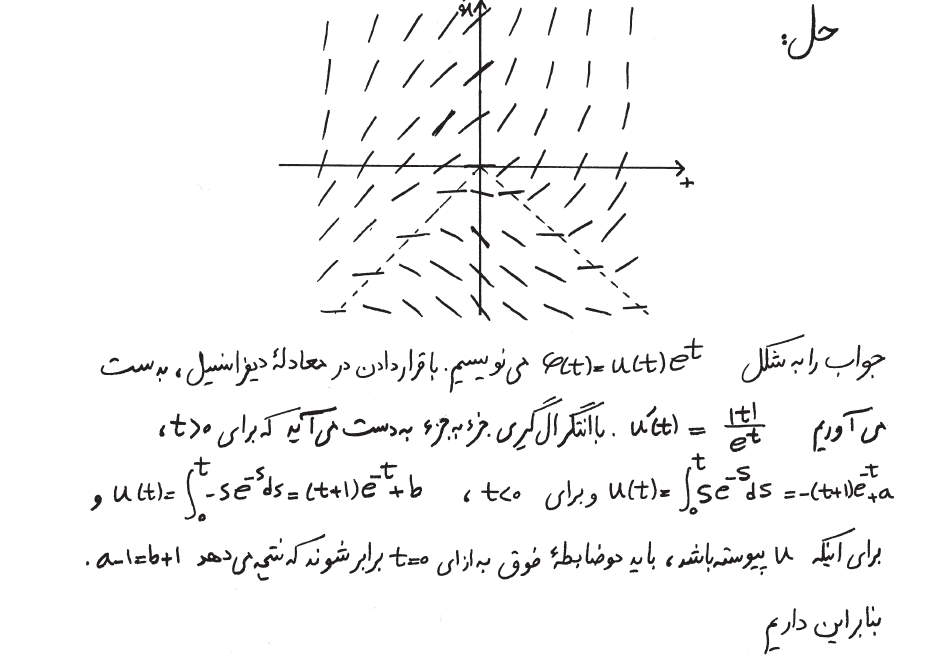 حل:
x
t
جواب را به شکل φ(t)=u(t)e^t می‌نویسیم. با قرار دادن در معادلهٔ دیفرانسیل، به‌دست
می‌آوریم u'(t) = |t|/e^t . با انتگرال‌گیری جزء به جزء به دست می‌آید که برای t>0،
u(t)=∫_0^t se^{-s}ds = -(t+1)e^{-t}+a و برای t<0، u(t)=∫_0^t -se^{-s}ds=(t+1)e^{-t}+b و
برای اینکه u پیوسته باشد، باید دو ضابطهٔ فوق به ازای t=0 برابر شوند که نتیجه می‌دهد a-1=b+1.
بنابراین داریم